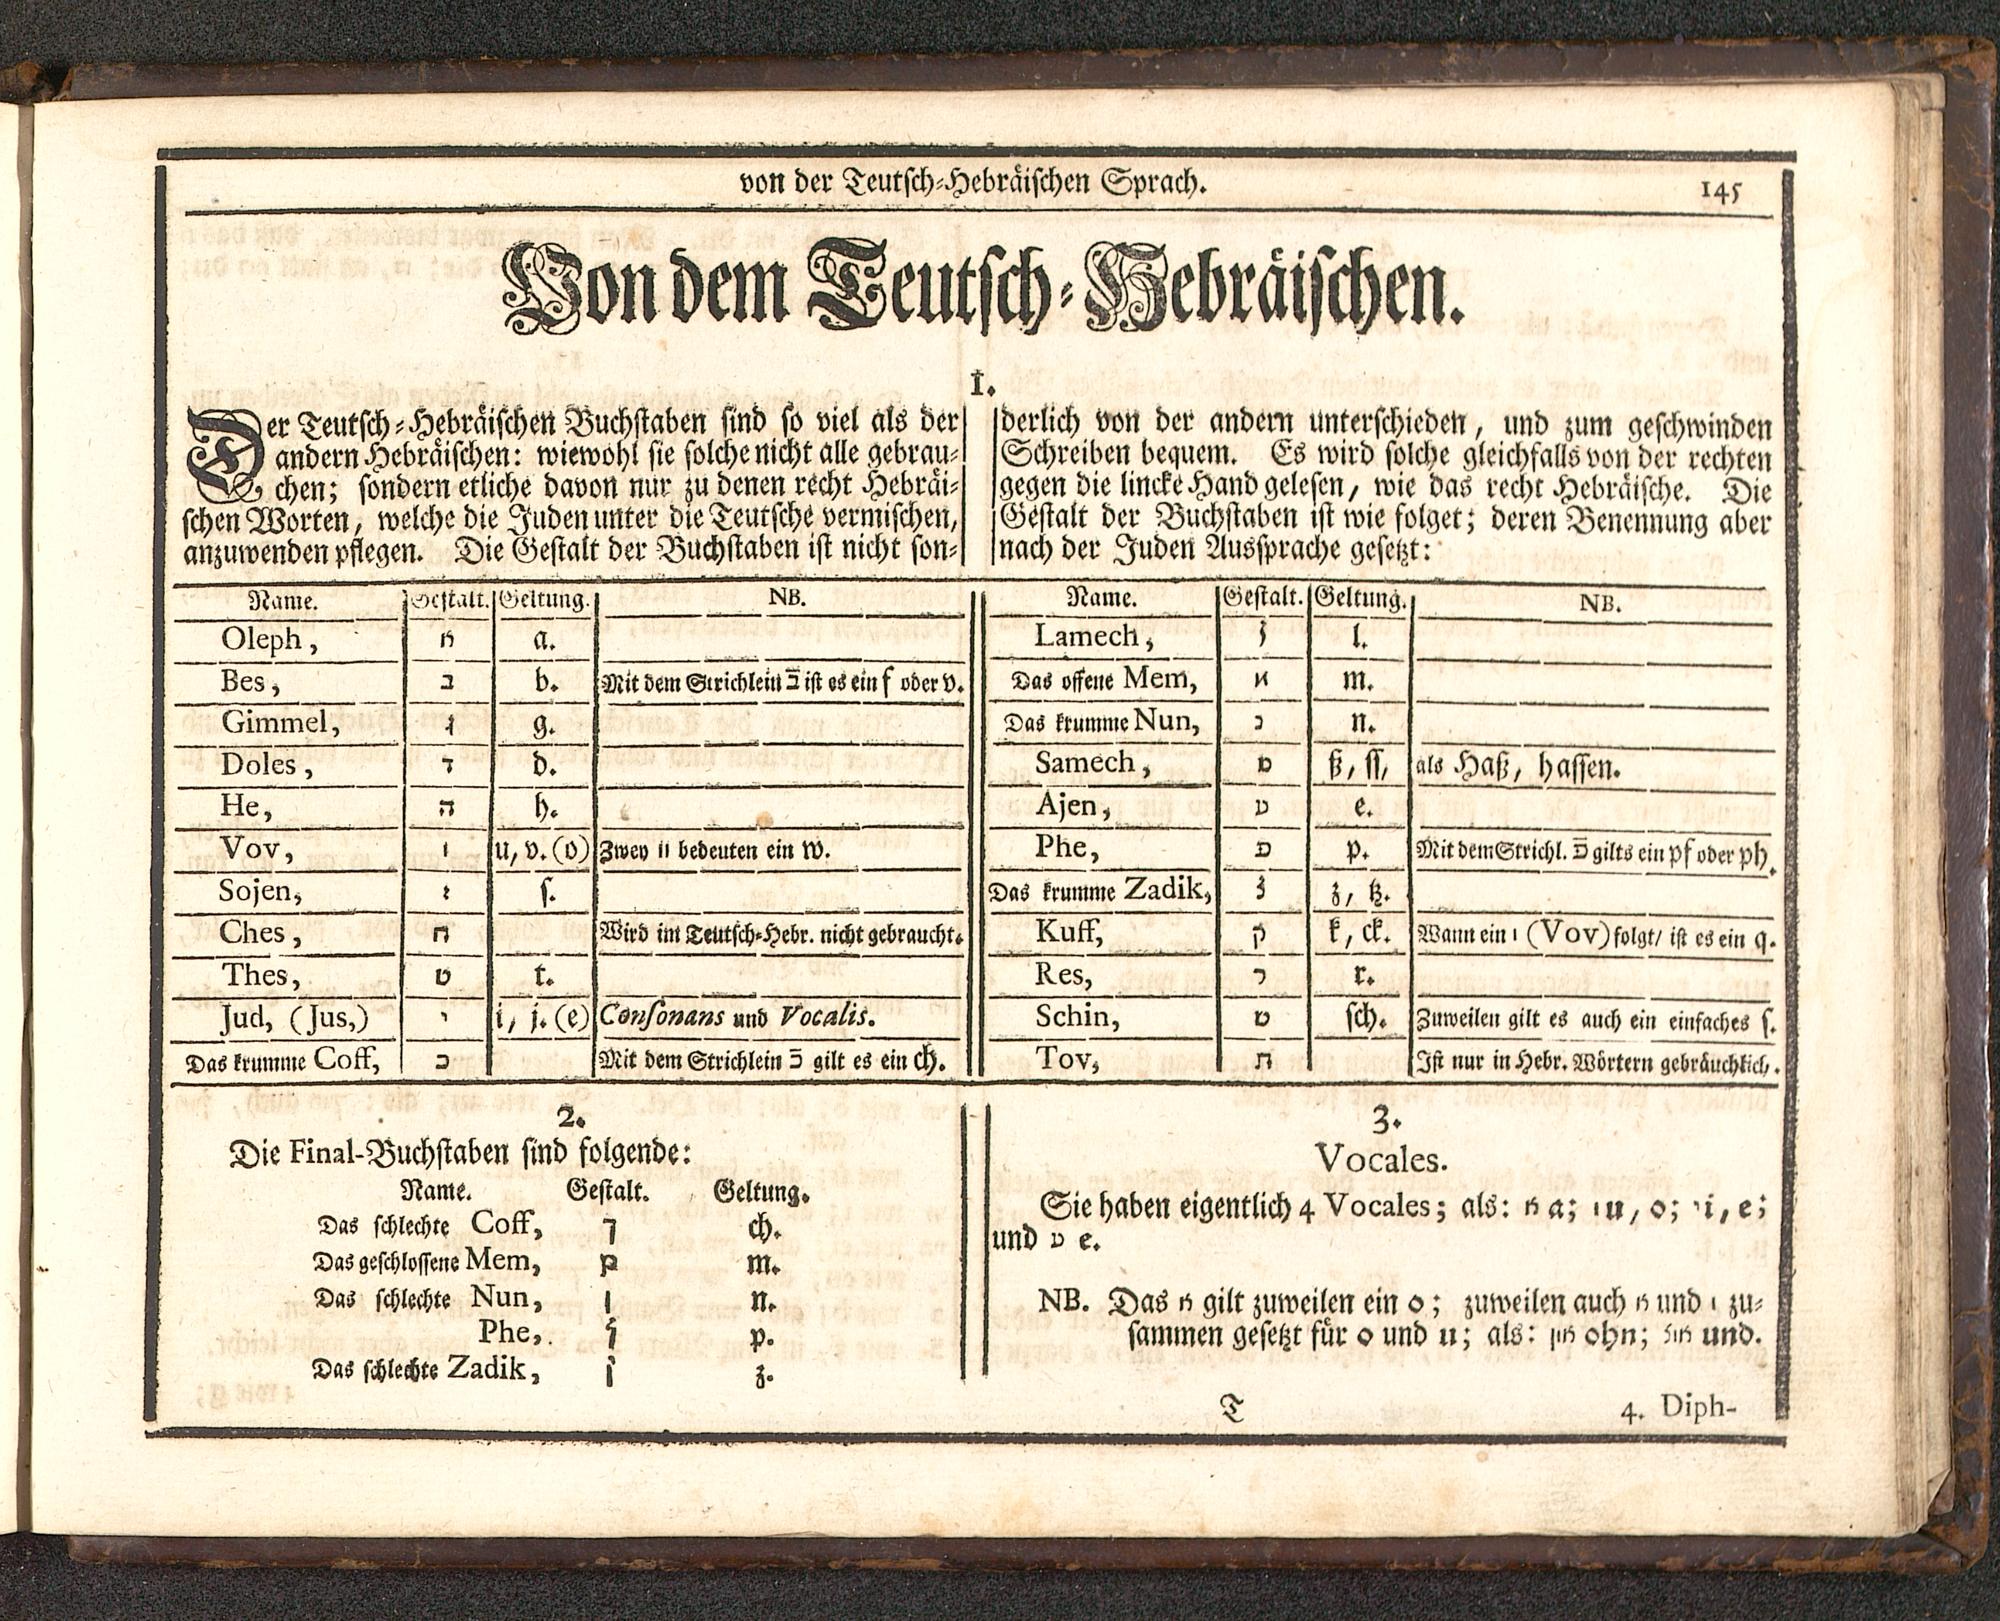 von der Teutsch-Hebräischen Sprach.
145
Von dem Teutsch-Hebräischen.
1.
Der Teutsch-Hebräischen Buchstaben sind so viel als der
andern Hebräischen: wiewohl sie solche nicht alle gebrau-
chen; sondern etliche davon nur zu denen recht Hebräi-
schen Worten, welche die Juden unter die Teutsche vermischen,
anzuwenden pflegen. Die Gestalt der Buchstaben ist nicht son-
derlich von der andern unterschieden, und zum geschwinden
Schreiben bequem. Es wird solche gleichfalls von der rechten
gegen die lincke Hand gelesen, wie das recht Hebräische. Die
Gestalt der Buchstaben ist wie folget; deren Benennung aber
nach der Juden Aussprache gesetzt:
Name. Gestalt. Geltung. NB.
Oleph, א a.
Bes, ב b. Mit dem Strichlein בֿ ist es ein f oder v.
Gimmel, ג g.
Doles, ד d.
He, ה h.
Vov, ו u, v. (o) Zwey וו bedeuten ein w.
Sojen, ז s.
Ches, ח Wird im Teutsch-Hebr. nicht gebraucht.
Thes, ט t.
Jud, (Jus,) י i, j. (e) Consonans und Vocalis.
Das krumme Coff, כ Mit dem Strichlein כֿ gilt es ein ch.
Name. Gestalt. Geltung. NB.
Lamech, ל l.
Das offene Mem, מ m.
Das krumme Nun, נ n.
Samech, ס ß, ss, als Haß, hassen.
Ajen, ע e.
Phe, פ p. Mit dem Strichl. פֿ gilts ein pf oder ph.
Das krumme Zadik, צ z, tz.
Kuff, ק k, ck. Wann ein ו (Vov) folgt/ ist es ein q.
Res, ר r.
Schin, ש sch. Zuweilen gilt es auch ein einfaches s.
Tov, ת Ist nur in Hebr. Wörtern gebräuchlich.
2.
Die Final-Buchstaben sind folgende:
Name. Gestalt. Geltung.
Das schlechte Coff, ך ch.
Das geschlossene Mem, ם m.
Das schlechte Nun, ן n.
Phe, ף p.
Das schlechte Zadik, ץ z.
3.
Vocales.
Sie haben eigentlich 4 Vocales; als: א a; ו u, o; י i, e;
und ע e.
NB. Das א gilt zuweilen ein o; zuweilen auch א und ו zu-
sammen gesetzt für o und u; als: און ohn; אונד und.
T
4. Diph-